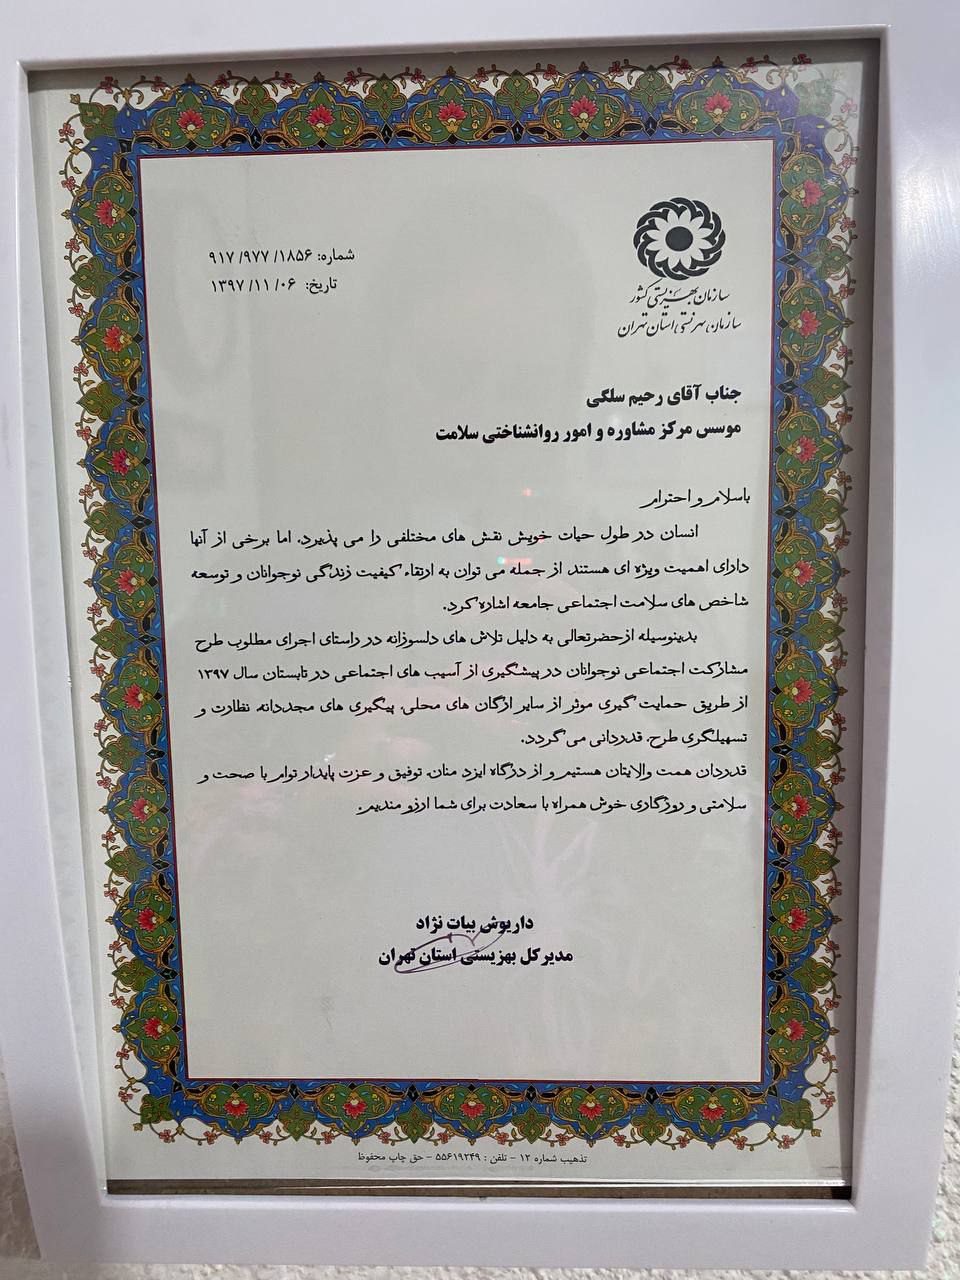 شماره: ۹۱۷/۹۷۷/۱۸۵۶
تاریخ: ۱۳۹۷/۱۱/۰۶
سازمان بهزیستی کشور
سازمان بهزیستی استان تهران
جناب آقای رحیم سلگی
موسس مرکز مشاوره و امور روانشناختی سلامت
باسلام و احترام
انسان در طول حیات خویش نقش های مختلفی را می پذیرد، اما برخی از آنها
دارای اهمیت ویژه ای هستند از جمله می توان به ارتقاء کیفیت زندگی نوجوانان و توسعه
شاخص های سلامت اجتماعی جامعه اشاره کرد.
بدینوسیله ازحضرتعالی به دلیل تلاش های دلسوزانه در راستای اجرای مطلوب طرح
مشارکت اجتماعی نوجوانان در پیشگیری از آسیب های اجتماعی در تابستان سال ۱۳۹۷
از طریق حمایت گیری موثر از سایر ارگان های محلی، پیگیری های مجددانه، نظارت و
تسهیلگری طرح، قدردانی می گردد.
قدردان همت والایتان هستیم و از درگاه ایزد منان، توفیق و عزت پایدار توام با صحت و
سلامتی و روزگاری خوش همراه با سعادت برای شما ارزو مندیم.
داریوش بیات نژاد
مدیرکل بهزیستی استان تهران
تذهیب شماره ۱۲ - تلفن : ۵۵۶۱۹۲۴۹ - حق چاپ محفوظ